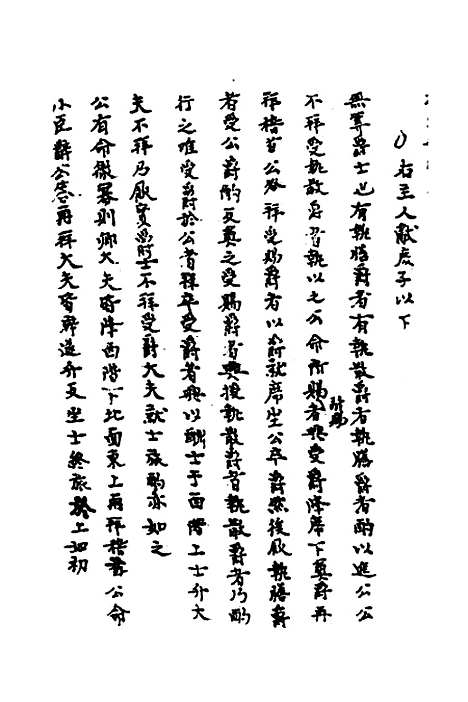 右主人獻庶子以下
無筭爵士也有執膳爵者有執散爵者執膳爵者酌以進公公
不拜受執散爵者執以之公命所賜所賜者興受爵降席下奠爵再
拜稽首公答拜受賜爵者以爵就席坐公卒爵然後飲執膳爵
者受公爵酌反奠之受賜爵者興授執散爵者執散爵者乃酌
行之唯受爵於公者拜卒受爵者興以酬士于西階上士升大
夫不拜乃飲實爵士不拜受爵大夫就士旅酌亦如之
公有命徹冪則卿大夫皆降西階下北面東上再拜稽首公命
小臣辭公答再拜大夫皆辟遂升反坐士終旅於上如初